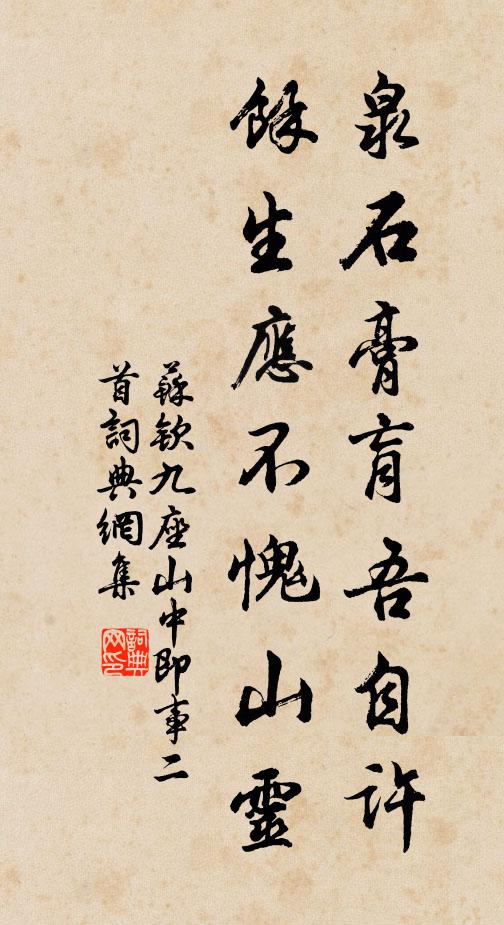 泉石膏肓吾自許
餘生應不愧山靈
蘇欽九座山中即事二
首詞典網集
詞典网印